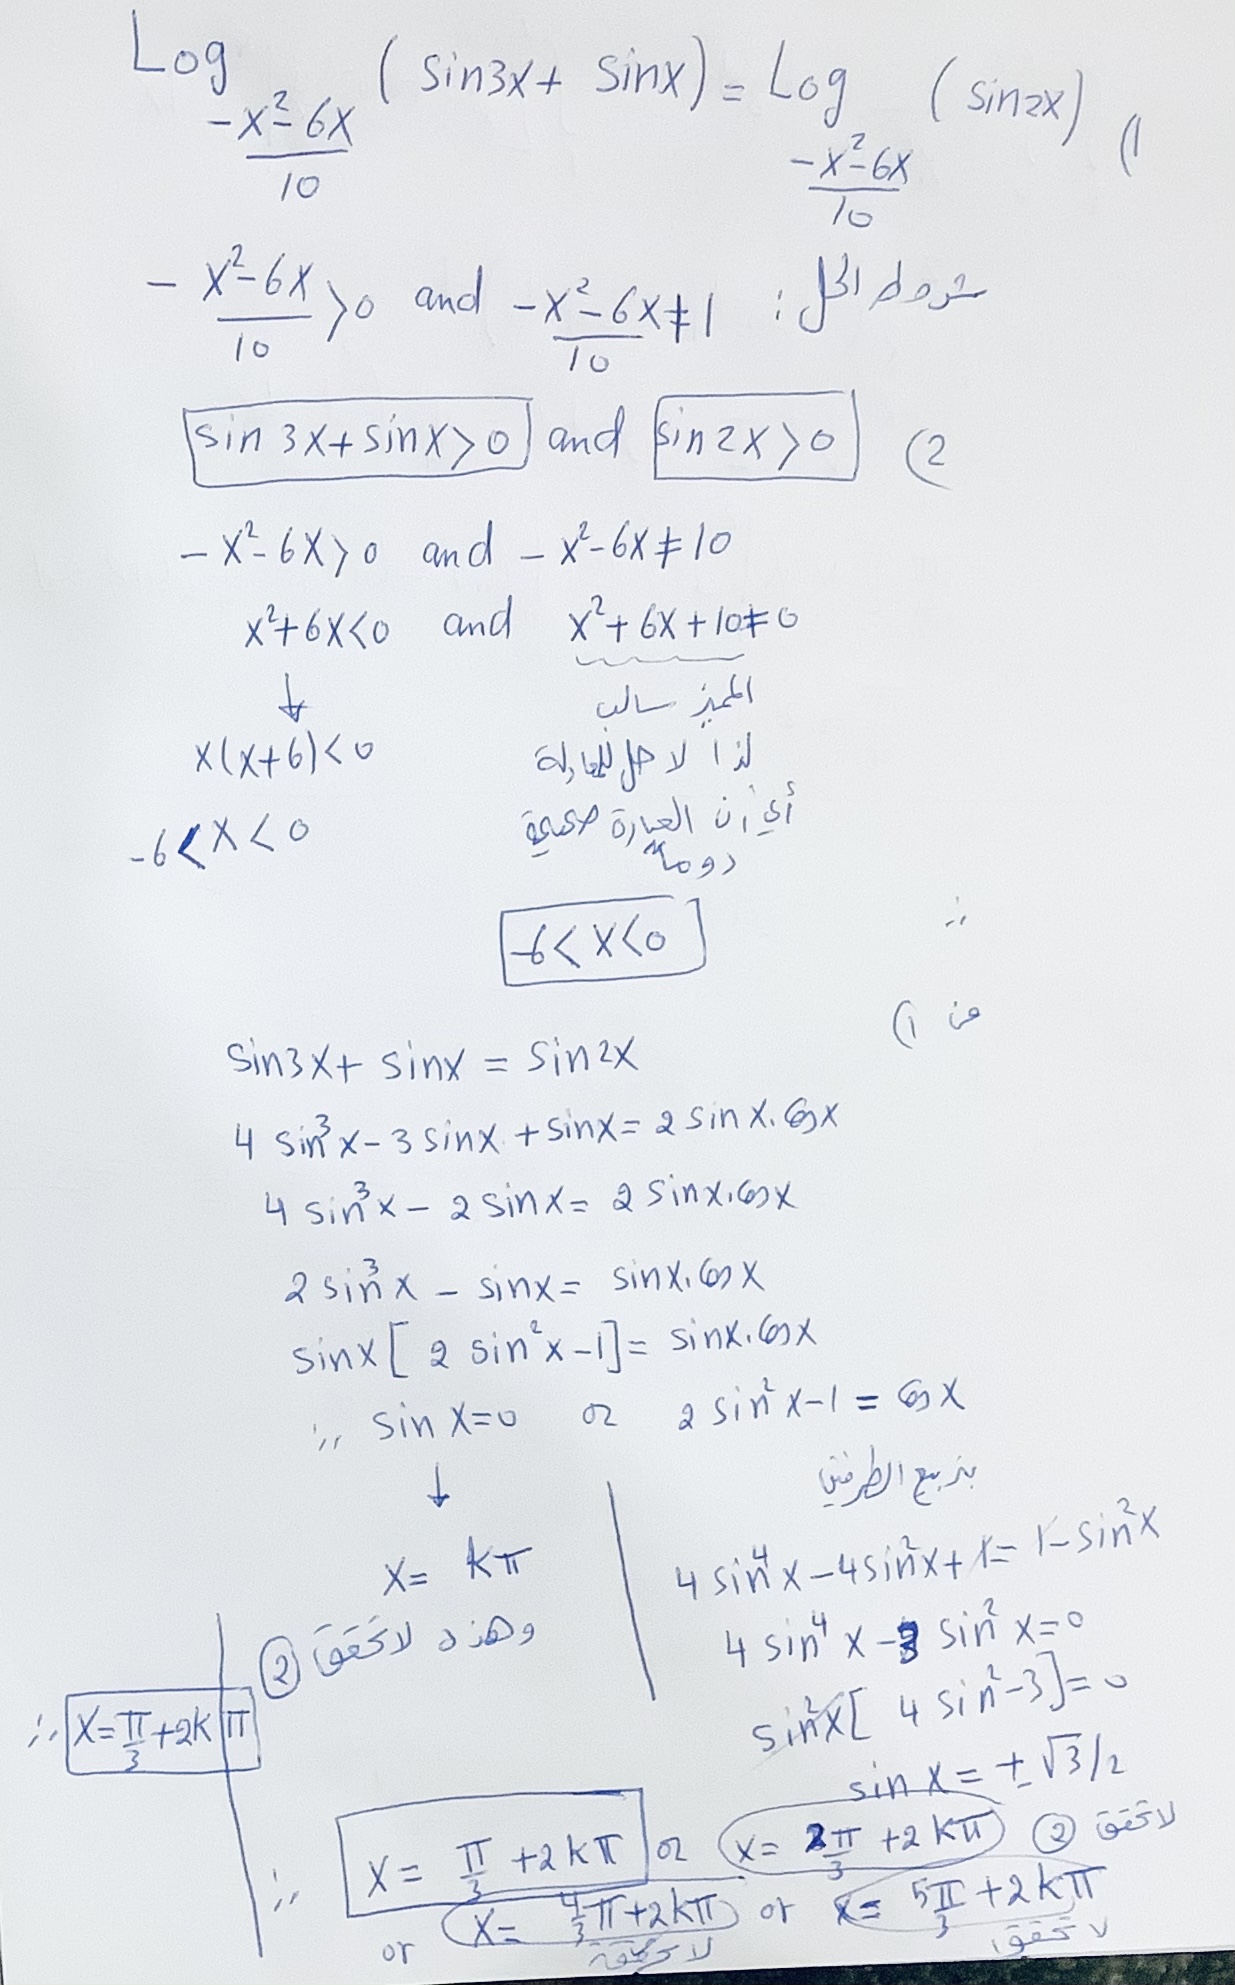 Log_{\frac{-x^2-6x}{10}} (sin3x + sinx) = Log_{\frac{-x^2-6x}{10}} (sin2x) (1
شروط الحل : -\frac{x^2-6x}{10} > 0 and \frac{-x^2-6x}{10} ≠ 1
sin3x + sinx > 0 and sin2x > 0 (2
-x²-6x > 0 and -x²-6x ≠ 10
x²+6x < 0 and x²+6x+10 ≠ 0
↓ المميز سالب
x(x+6) < 0 لذا لا حل للمعادلة
-6 < x < 0 أي أن العبارة صحيحة
دوماً
∴ -6 < x < 0
من (1
sin3x + sinx = sin2x
4 sin³x - 3 sinx + sinx = 2 sinx.cosx
4 sin³x - 2 sinx = 2 sinx.cosx
2 sin³x - sinx = sinx.cosx
sinx [2 sin²x - 1] = sinx.cosx
∴ sinx = 0 or 2 sin²x - 1 = cosx
↓ بتربيع الطرفين
x = kπ
وهذه لا تحقق (2)
4 sin⁴x - 4 sin²x + 1 = 1 - sin²x
4 sin⁴x - 3 sin²x = 0
sin²x [4 sin² - 3] = 0
sinx = ± √3/2
∴ x = \frac{π}{3} + 2kπ or x = \frac{2π}{3} + 2kπ لا تحقق (2)
or x = \frac{4}{3}π + 2kπ or x = \frac{5π}{3} + 2kπ
لا تحققة لا تحقق
∴ x = \frac{π}{3} + 2kπ